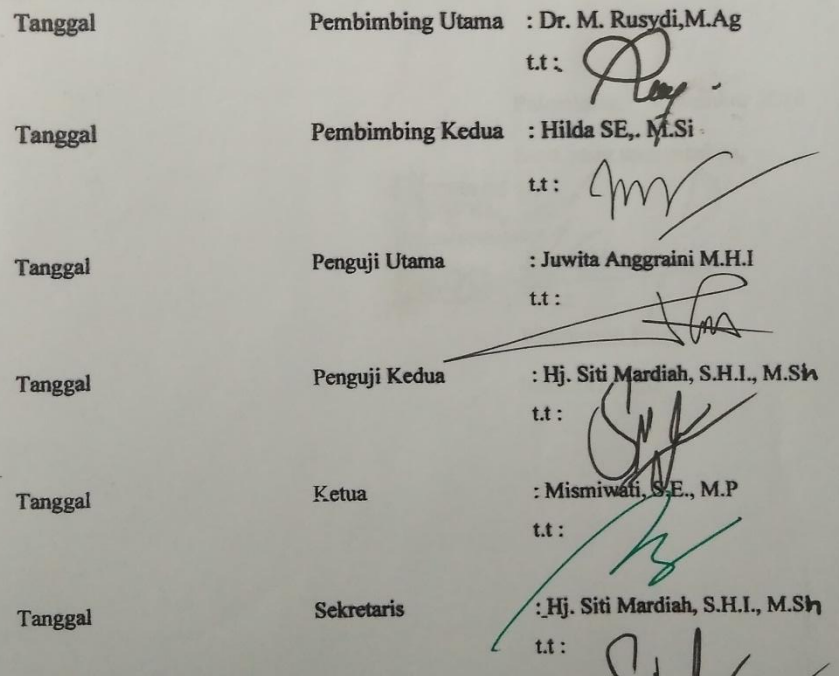 Tanggal Pembimbing Utama : Dr. M. Rusydi,M.Ag
t.t :
Tanggal Pembimbing Kedua : Hilda SE,. M.Si
t.t :
Tanggal Penguji Utama : Juwita Anggraini M.H.I
t.t :
Tanggal Penguji Kedua : Hj. Siti Mardiah, S.H.I., M.Sh
t.t :
Tanggal Ketua : Mismiwati, S.E., M.P
t.t :
Tanggal Sekretaris : Hj. Siti Mardiah, S.H.I., M.Sh
t.t :